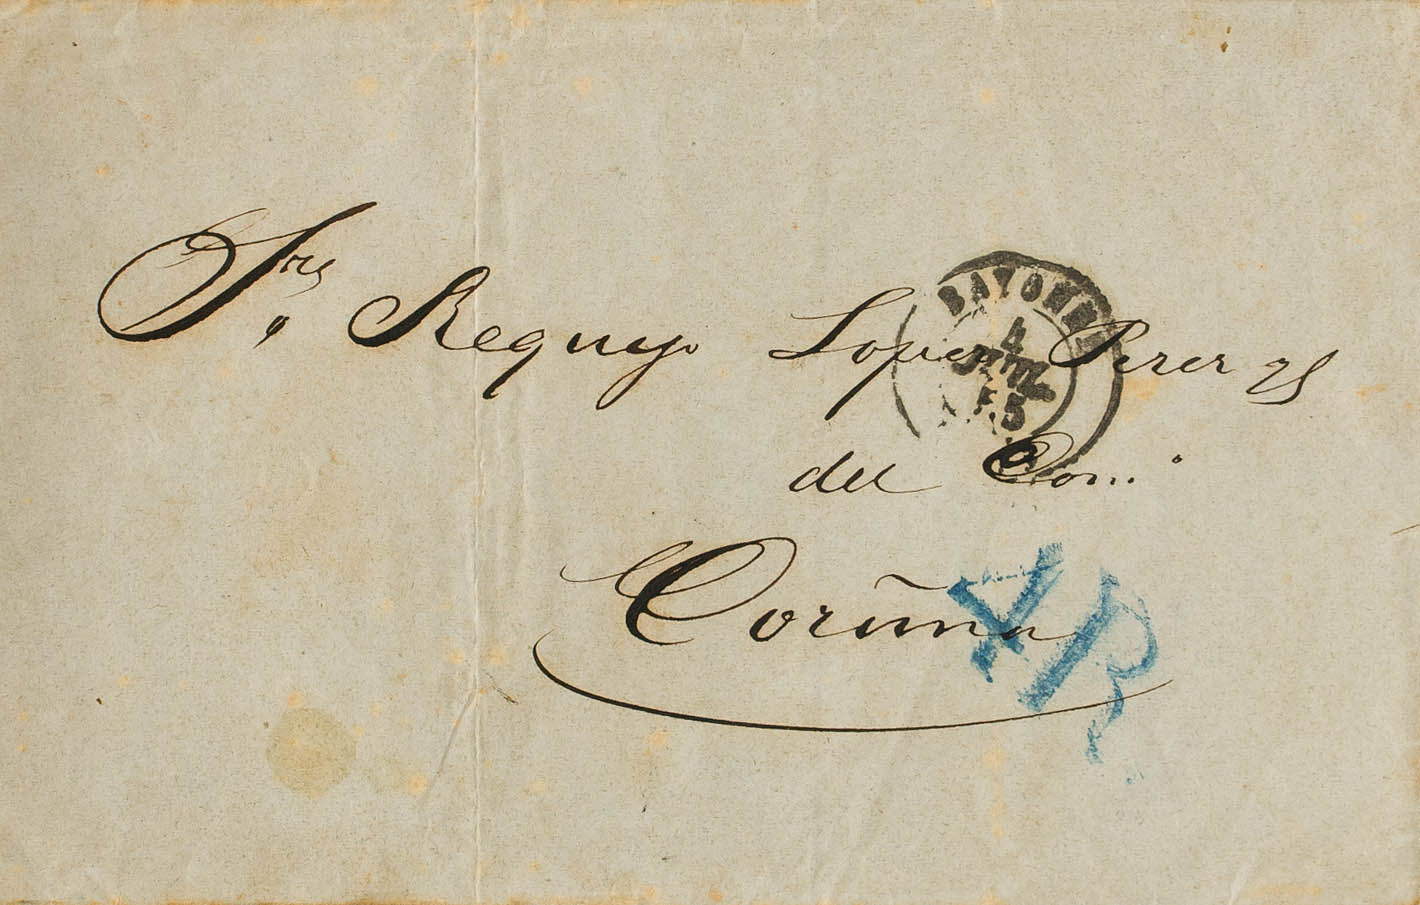 Sres Requejo Lopez Perez y
del Com.º
Coruña
BAYONNE
4
JUIL.
55
4R